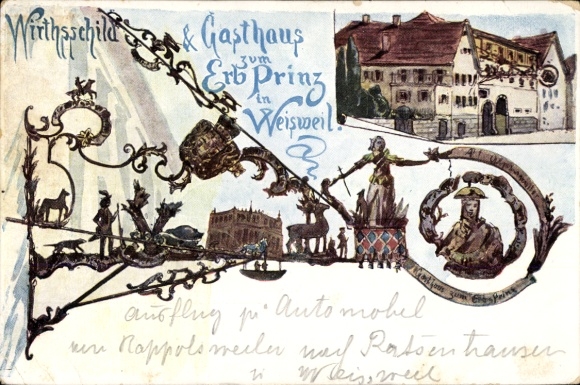 Wirthsschild & Gasthaus
zum
Erb Prinz
in
Weisweil.
Gasthaus zum Erbprinz
Ausflug per Automobel
von Rappolsweiler nach Ratsenhausen
u Weissweil